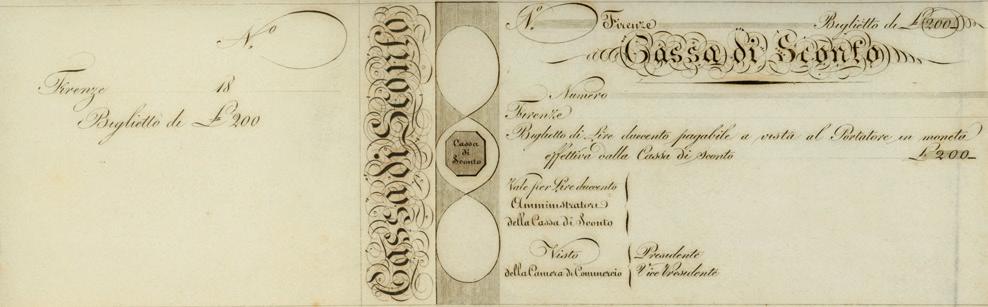 N.º
Firenze 18
Biglietto di £ 200
Cassa di Sconto
Cassa
di
Sconto
N.º Firenze Biglietto di £ 200
Cassa di Sconto
Numero
Firenze
Biglietto di Lire duecento pagabile a vista al Portatore in moneta
effettiva dalla Cassa di Sconto £ 200
Vale per Lire duecento
Amministratori
della Cassa di Sconto
Visto
della Camera di Commercio
Presidente
Vice Presidente